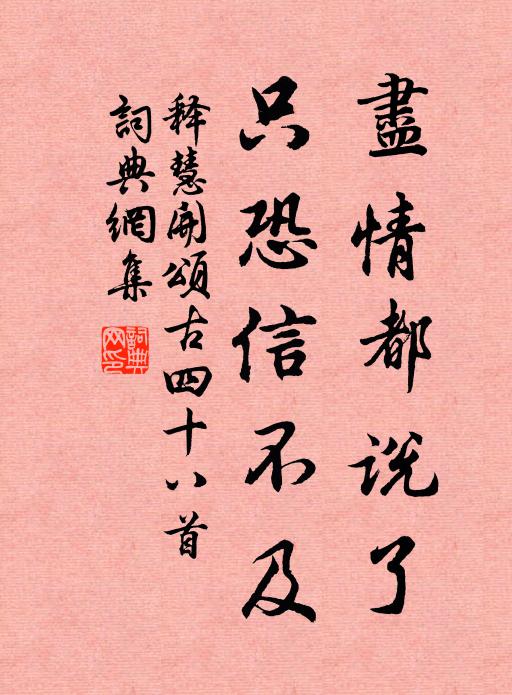 盡情都說了
只恐信不及
释慧開頌古四十八首
詞典網集
詞典網印